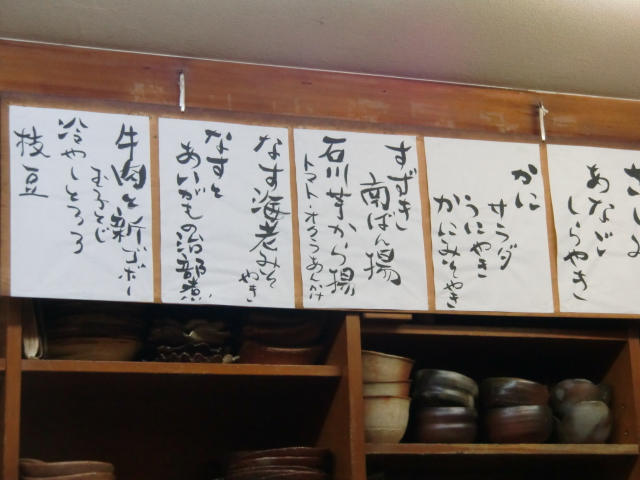 あなご
しらやき
かに
サラダ
うにやき
かにみそやき
すずき
南ばん揚
石川芋から揚
トマト・オクラあんかけ
なす海老みそ
やき
なすと
あいがもの治部煮
牛肉と新ゴボー
冷やしとろろ
枝豆